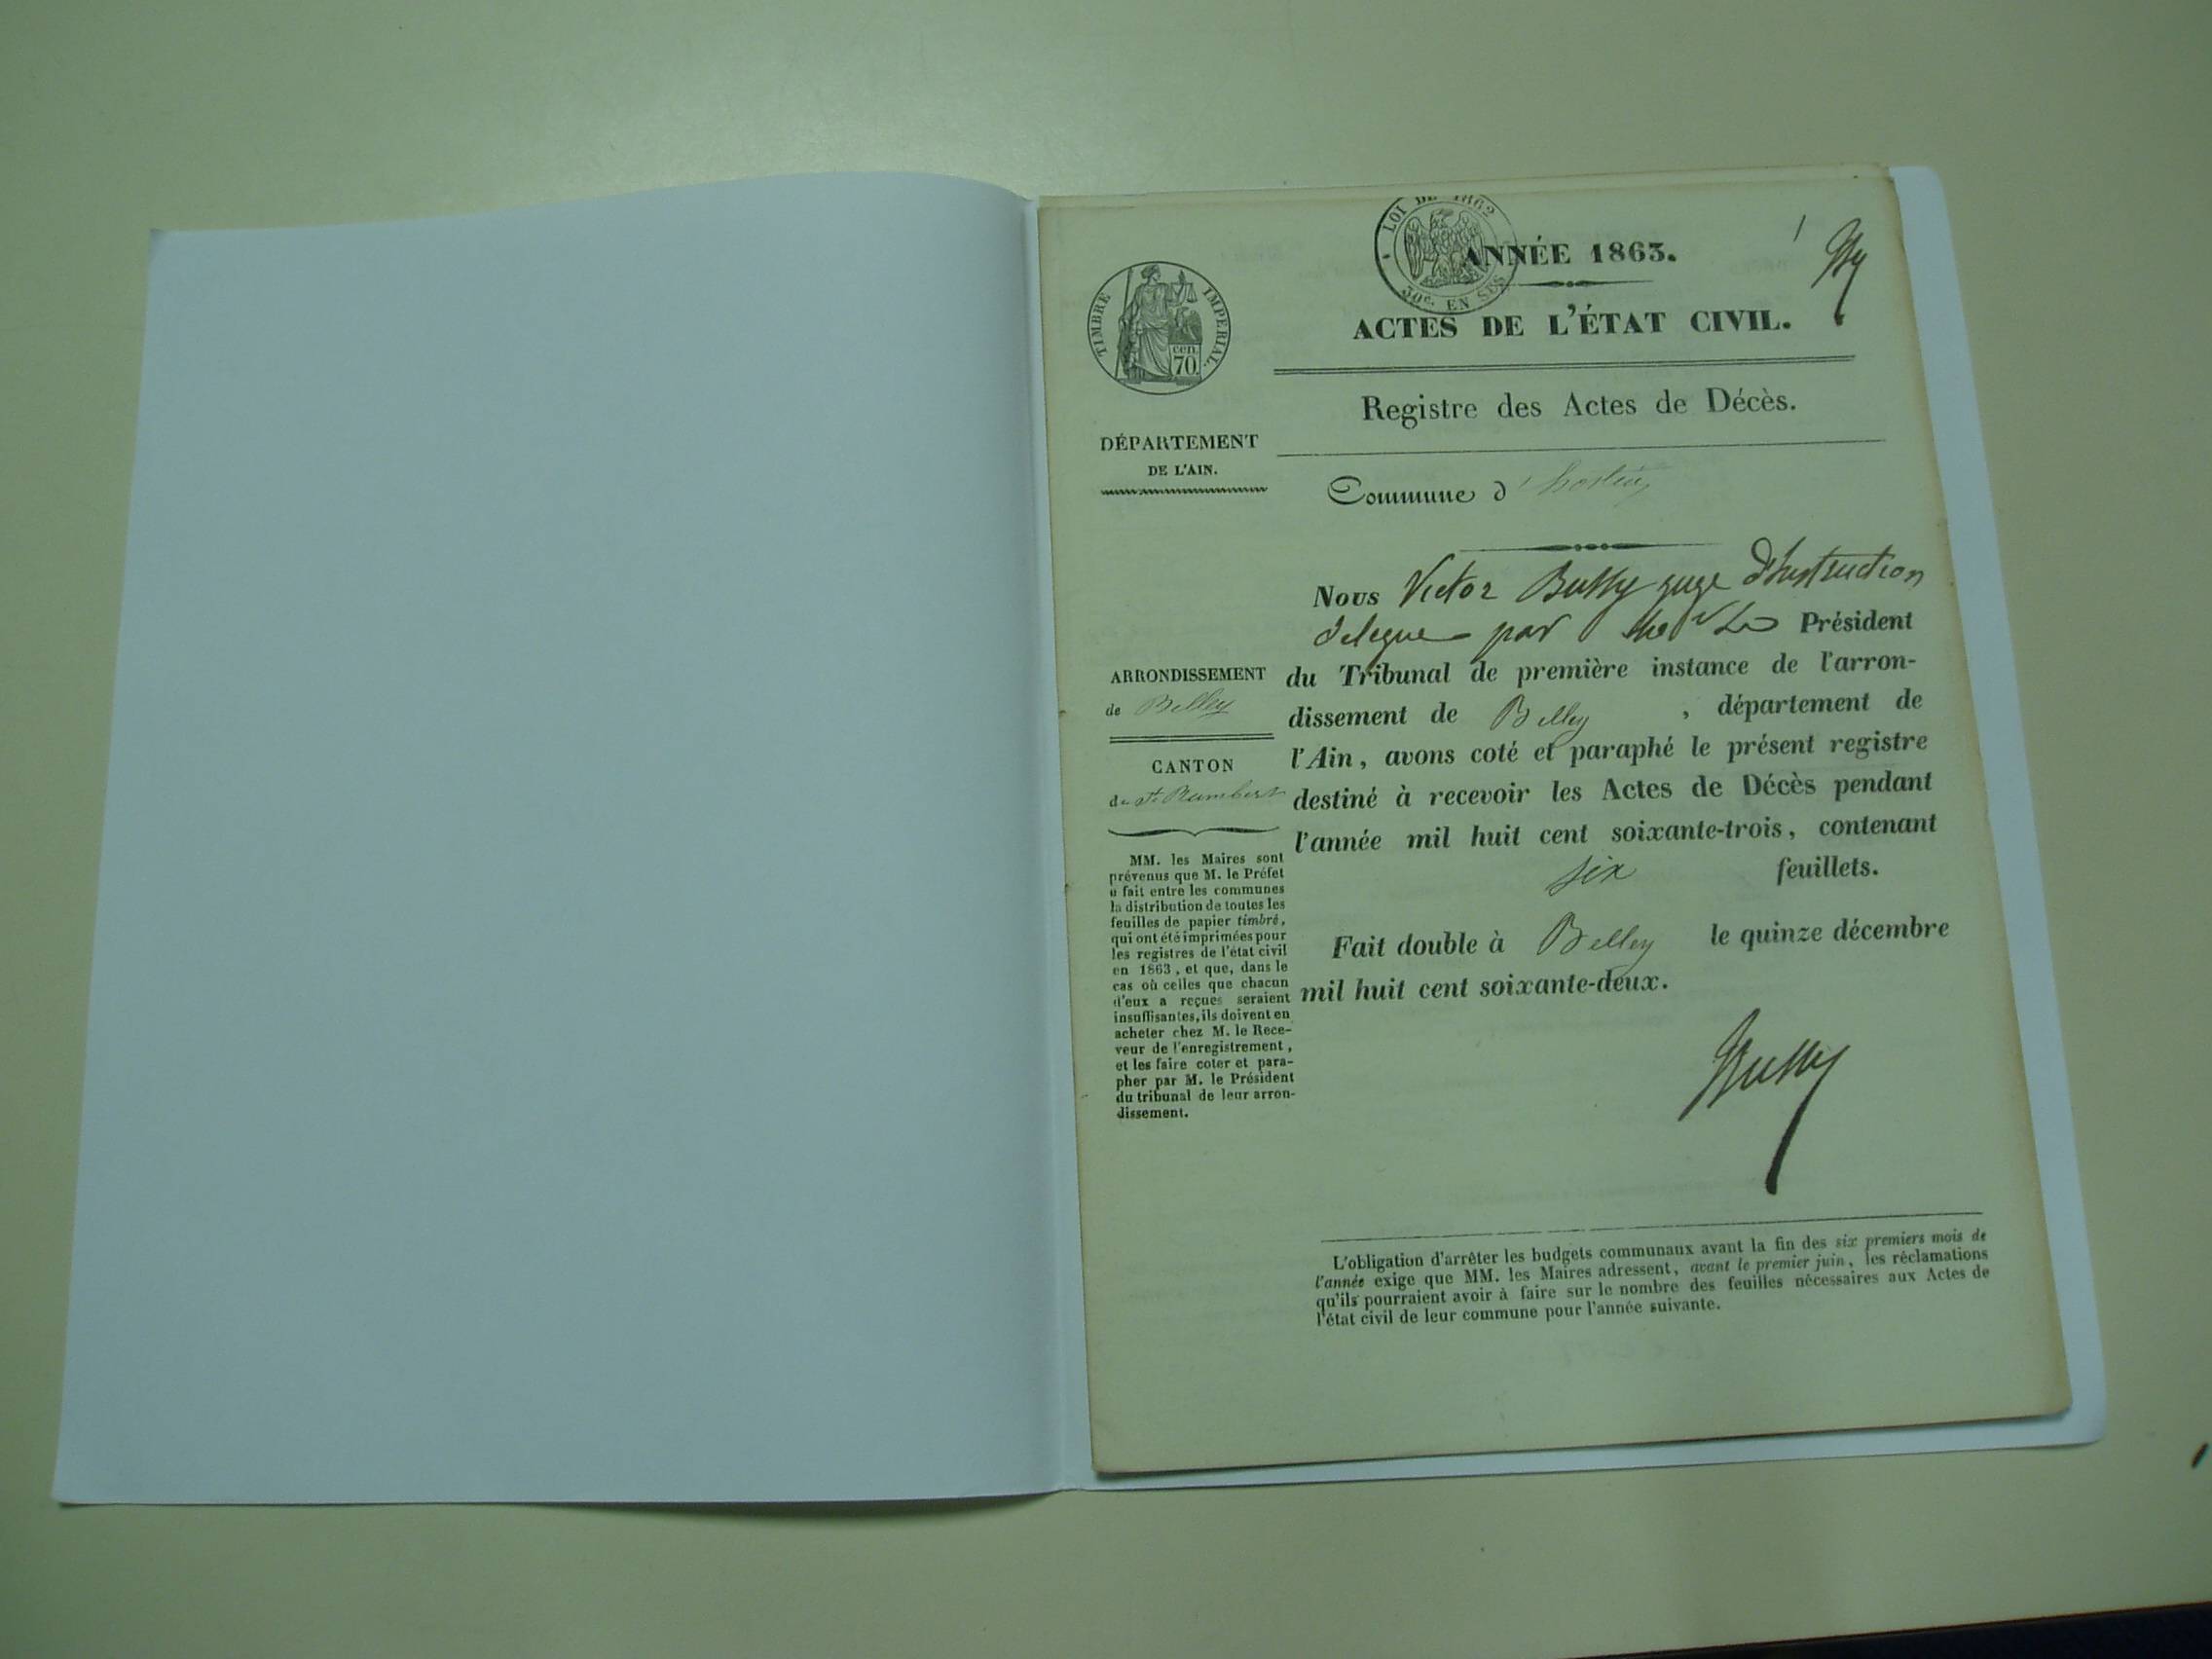 LOI DE 1862
30c. EN SUS
ANNÉE 1863.
1
ACTES DE L'ÉTAT CIVIL.
Registre des Actes de Décès.
Commune d'hostiaz
TIMBRE IMPERIAL
cen.
70.
DÉPARTEMENT
DE L'AIN.
ARRONDISSEMENT
de Belley
CANTON
de St. Rambert
MM. les Maires sont
prévenus que M. le Préfet
a fait entre les communes
la distribution de toutes les
feuilles de papier timbré,
qui ont été imprimées pour
les registres de l'état civil
en 1863, et que, dans le
cas où celles que chacun
d'eux a reçues seraient
insuffisantes, ils doivent en
acheter chez M. le Rece-
veur de l'enregistrement,
et les faire coter et para-
pher par M. le Président
du tribunal de leur arron-
dissement.
Nous Victor Bussy juge d'Instruction
délégué par Le Président
du Tribunal de première instance de l'arron-
dissement de Belley, département de
l'Ain, avons coté et paraphé le présent registre
destiné à recevoir les Actes de Décès pendant
l'année mil huit cent soixante-trois, contenant
six feuillets.
Fait double à Belley le quinze décembre
mil huit cent soixante-deux.
Bussy
L'obligation d'arrêter les budgets communaux avant la fin des six premiers mois de
l'année exige que MM. les Maires adressent, avant le premier juin, les réclamations
qu'ils pourraient avoir à faire sur le nombre des feuilles nécessaires aux Actes de
l'état civil de leur commune pour l'année suivante.